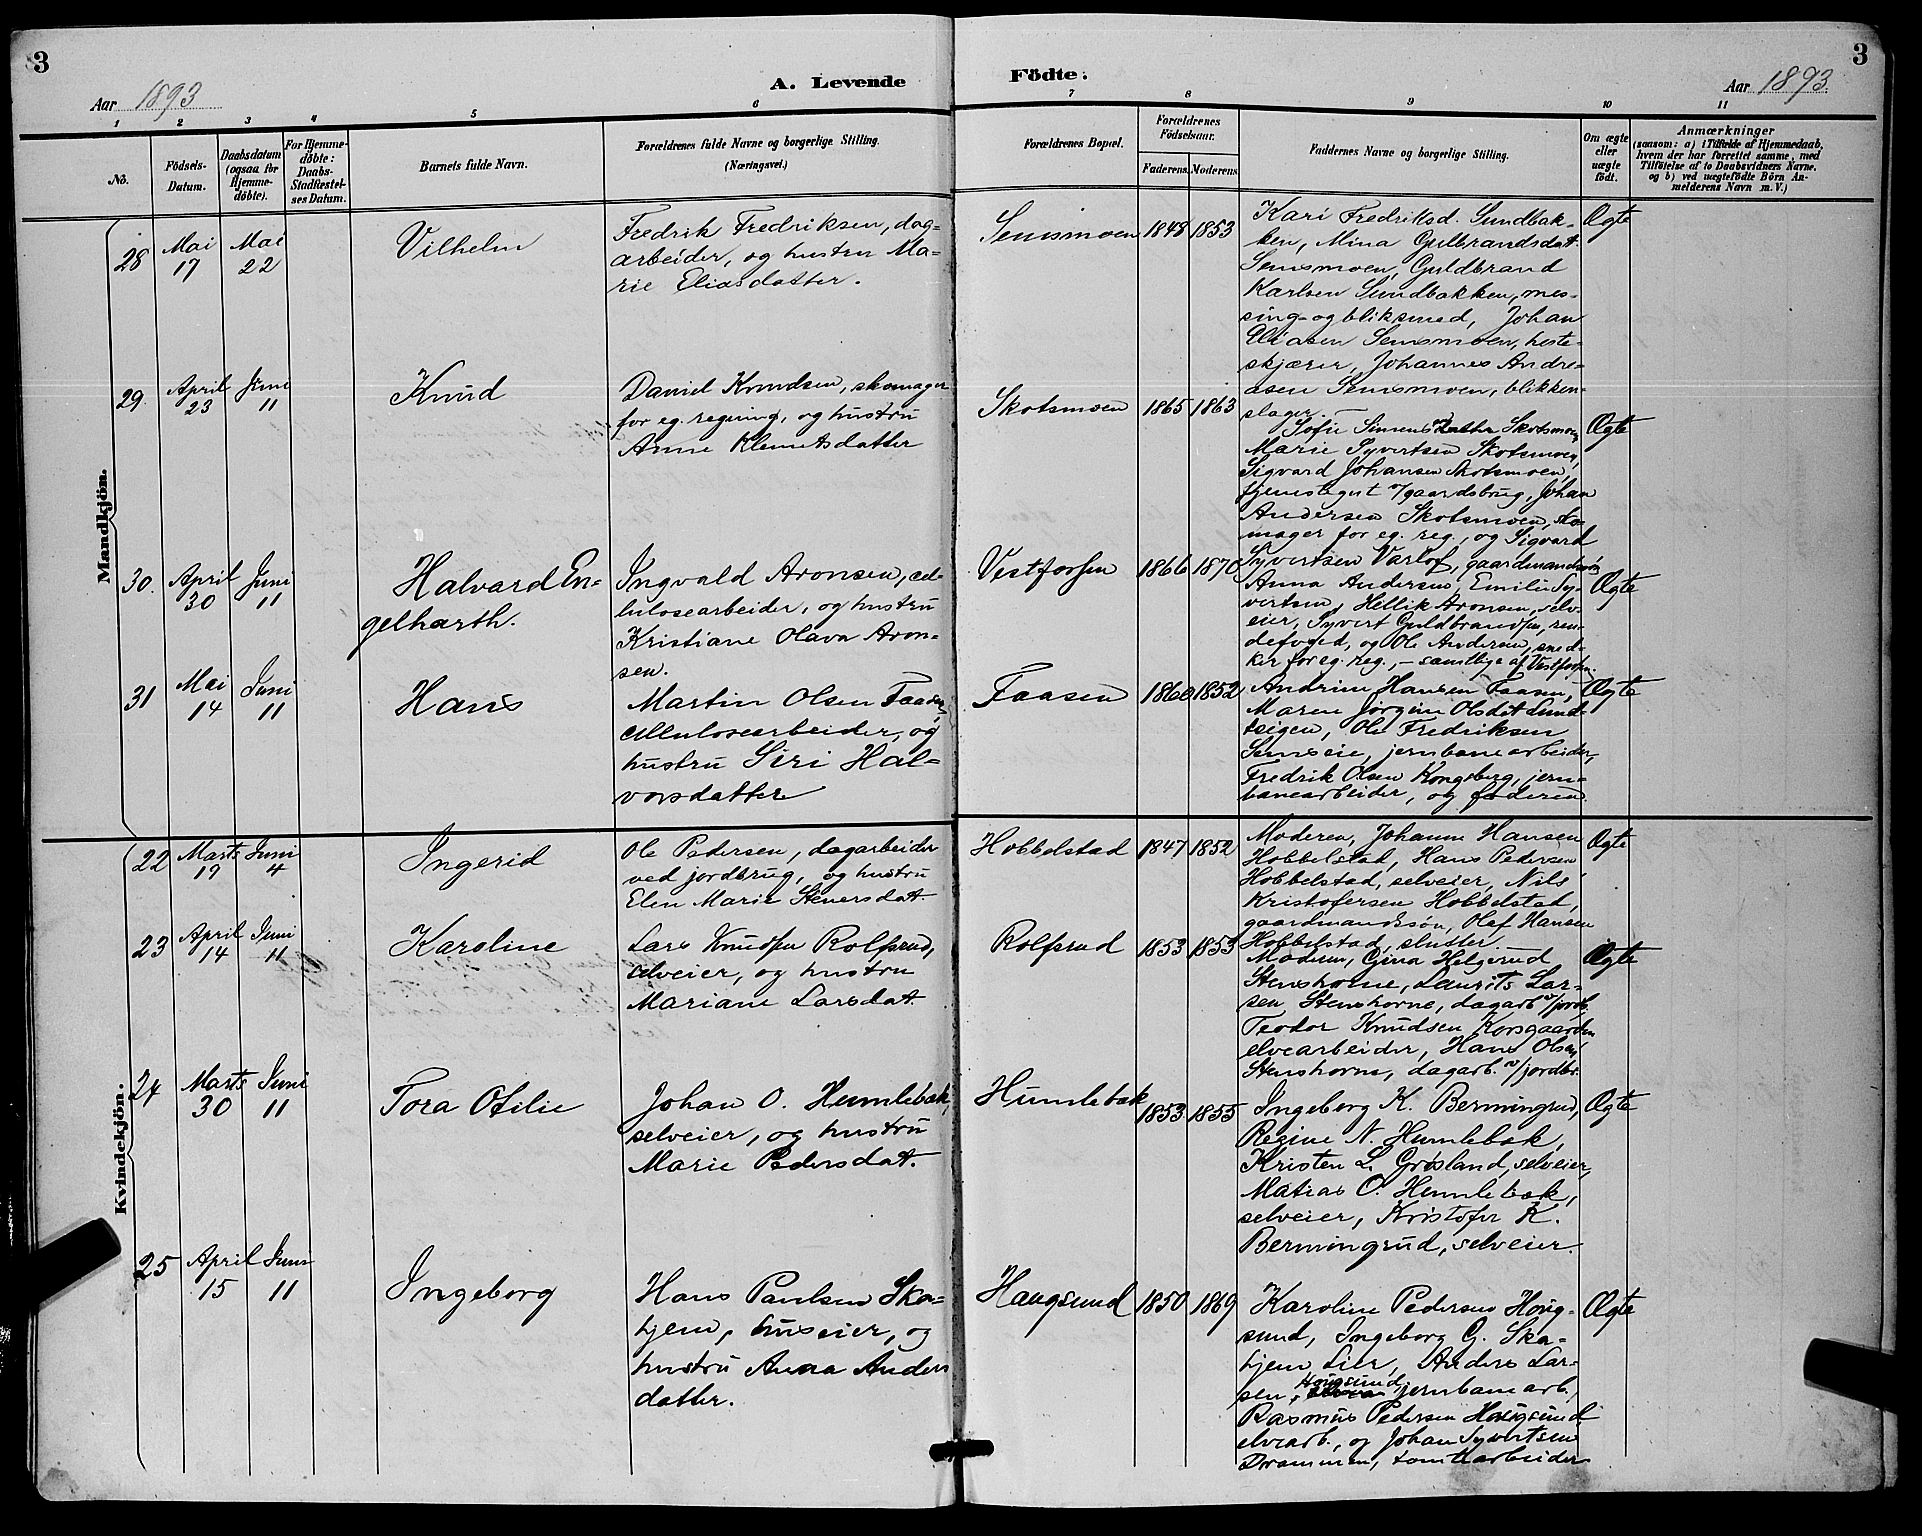 3
A. Levende Födte.
3
Aar 1893
Aar 1893.
1 2 3 4 5 6 7 8 9 10 11
No.
Födsels-
Datum.
Daabsdatum
(ogsaa for
Hjemme-
döbte).
For Hjemme-
döbte:
Daabs-
Stadfæstel-
ses Datum.
Barnets fulde Navn.
Forældrenes fulde Navne og borgerlige Stilling.
(Næringsvei.)
Forældrenes Bopæl.
Forældrenes
Födselsaar.
Faderens. Moderens.
Faddernes Navne og borgerlige Stilling.
Om ægte
eller
uægte
födt.
Anmærkninger
(saasom: a) i Tilfælde af Hjemmedaab,
hvem der har forrettet samme, med
Tilföielse af to Daabsvidners Navne,
og b) ved uægtefödte Börn An-
melderens Navn m. V.)
Mandkjön.
28
Mai
17
Mai
22
Vilhelm
Fredrik Fredriksen, dag-
arbeider, og hustru Ma-
rie Eliasdatter.
Semsmoen
1848 1853
Kari Fredriksd. Sundbak-
ken, Mina Gulbrandsdat.
Semsmoen, Guldbrand
Karlsen Sundbakken, mes-
sing- og bliksmed, Johan
Eliasen Semsmoen, heste-
skjærer, Johannes Andre-
asen Semsmoen, blikken-
slager.
Ægte
29.
April
23
Juni
11
Knud
Daniel Knudsen, skomager
for eg. regning, og hustru
Anne Klemetsdatter
Skotsmoen
1865 1863
Sofie Simensdatter Skotsmoen,
Marie Syvertsen Skotsmoen,
Sigvard Johansen Skotsmoen,
tjenestegut v/gaardsbrug, Johan
Andersen Skotsmoen, sko-
mager for eg. reg., og Sigvard
Syvertsen Varlof, gaardmandssøn
Ægte
30.
April
30
Juni
11
Halvard En-
gelharth.
Ingvald Aronsen, cel-
lulosearbeider, og hustru
Kristiane Olava Aron-
sen.
Vestfossen
1866 1870
Anna Andersen, Emilie Sy-
vertsen, Hellik Aronsen, selv-
eier, Syvert Guldbrandsen, ren-
defoged, og Ole Andersen, sned-
ker for eg. reg., - samtlige af Vestfossen.
Ægte
31
Mai
14
Juni
11
Hans
Martin Olsen Faasen,
cellulosearbeider, og
hustru Siri Hal-
vorsdatter
Faasen
1860 1852
Andrine Hansen Faasen,
Maren Jørgine Olsdat. Lund-
teigen, Ole Fredriksen
Semseie, jernbanearbeider,
Fredrik Olsen Kongsberg, jern-
banearbeider, og faderen
Ægte
Kvindekjön.
22
Marts
19
Juni
4
Ingerid
Ole Pedersen, dagarbeider
ved jordbrug, og hustru
Elen Marie Steversdat.
Hobbelstad
1847 1852
Moderen, Johanne Hansen
Hobbelstad, Hans Pedersen
Hobbelstad, selveier, Nils
Kristofersen Hobbelstad,
gaardmandssøn, Olaf Hansen
Hobbelstad, slutter.
Ægte
23
April
14
Juni
11
Karoline
Lars Knudsen Rolfsrud,
selveier, og hustru
Mariane Larsdat.
Rolfsrud
1853 1853
Moderen, Gina Helgerud
Stenshorne, Laurits Lar-
sen Stenshorne, dagarb. v/jordb.
Teodor Knudsen Korsgaarden
elvearbeider, Hans Olsen
Stenshorne, dagarb. v/jordbr.
Ægte
24
Marts
30
Juni
11
Tora Otilie
Johan O. Humlebæk,
selveier, og hustru
Marie Pedersdat.
Humlebæk
1853 1855
Ingeborg K. Bermingrud,
Regine N. Humlebæk,
Kristen L. Grøsland, selveier,
Matias O. Humlebæk,
selveier, Kristofer K.
Bermingrud, selveier.
Ægte
25
April
15
Juni
11
Ingeborg
Hans Paulsen Ska-
hjem, huseier, og
hustru Anna Anders
datter.
Haugsund
1850 1869
Karoline Pedersen Houg-
sund, Ingeborg G. Ska-
hjem Lier, Anders Lar-
sen, Hougsund, jernbanearb.,
Rasmus Pedersen Hougsund
elvearb., og Johan Syvertsen
Drammen, tomtearbeider
Ægte